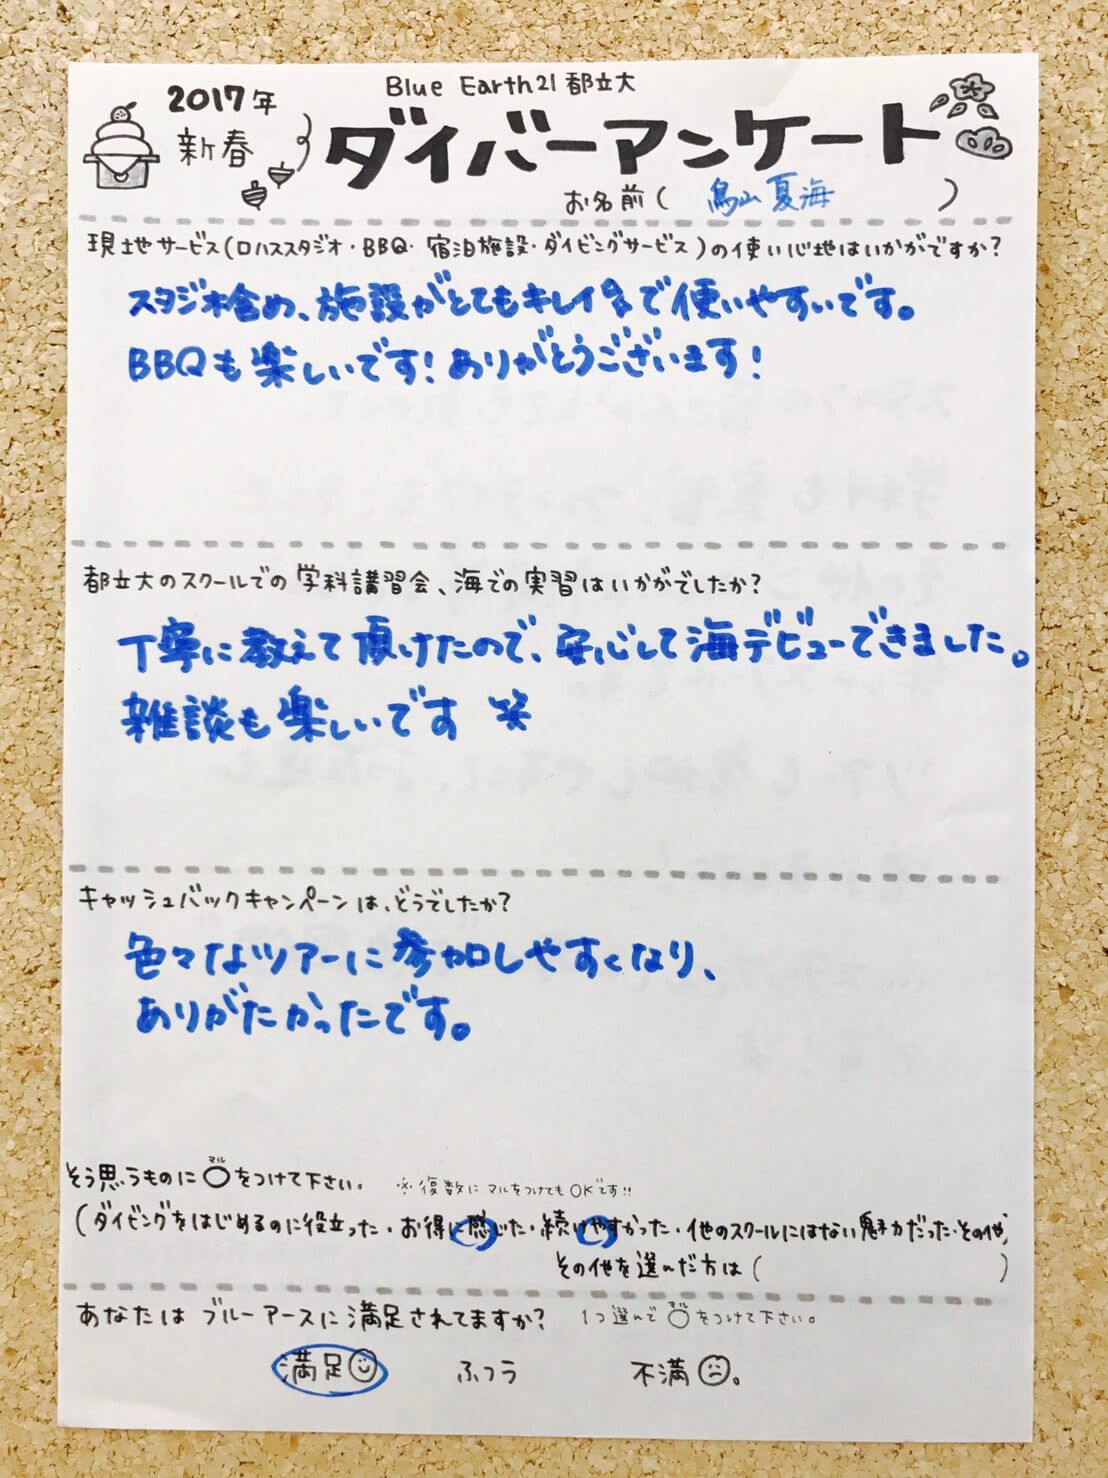 Blue Earth21 都立大
2017年
新春
ダイバーアンケート
お名前( 鳥山 夏海 )
現地サービス(ロハススタジオ・BBQ・宿泊施設・ダイビングサービス)の使い心地はいかがですか?
スタジオ含め、施設がとてもキレイまで使いやすいです。
BBQも楽しいです!ありがとうございます!
都立大のスクールでの学科講習会、海での実習はいかがでしたか?
丁寧に教えて頂けたので、安心して海デビューできました。
雑談も楽しいです 笑
キャッシュバックキャンペーンは、どうでしたか?
色々なツアーに参加しやすくなり、
ありがたかったです。
マル
そう思うものに○をつけて下さい。 ※復数にマルをつけてもOKです!!
(ダイビングをはじめるのに役立った・お得に感じた・続けやすかった・他のスクールにはない魅力だった・その他)
その他を選んだ方は( )
あなたはブルーアースに満足されてますか? 1つ選んで○をつけて下さい。
満足 ふつう 不満。